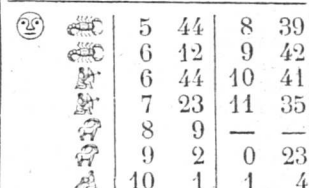 5 44 8 39
6 12 9 42
6 44 10 41
7 23 11 35
8 9 — —
9 2 0 23
10 1 1 4